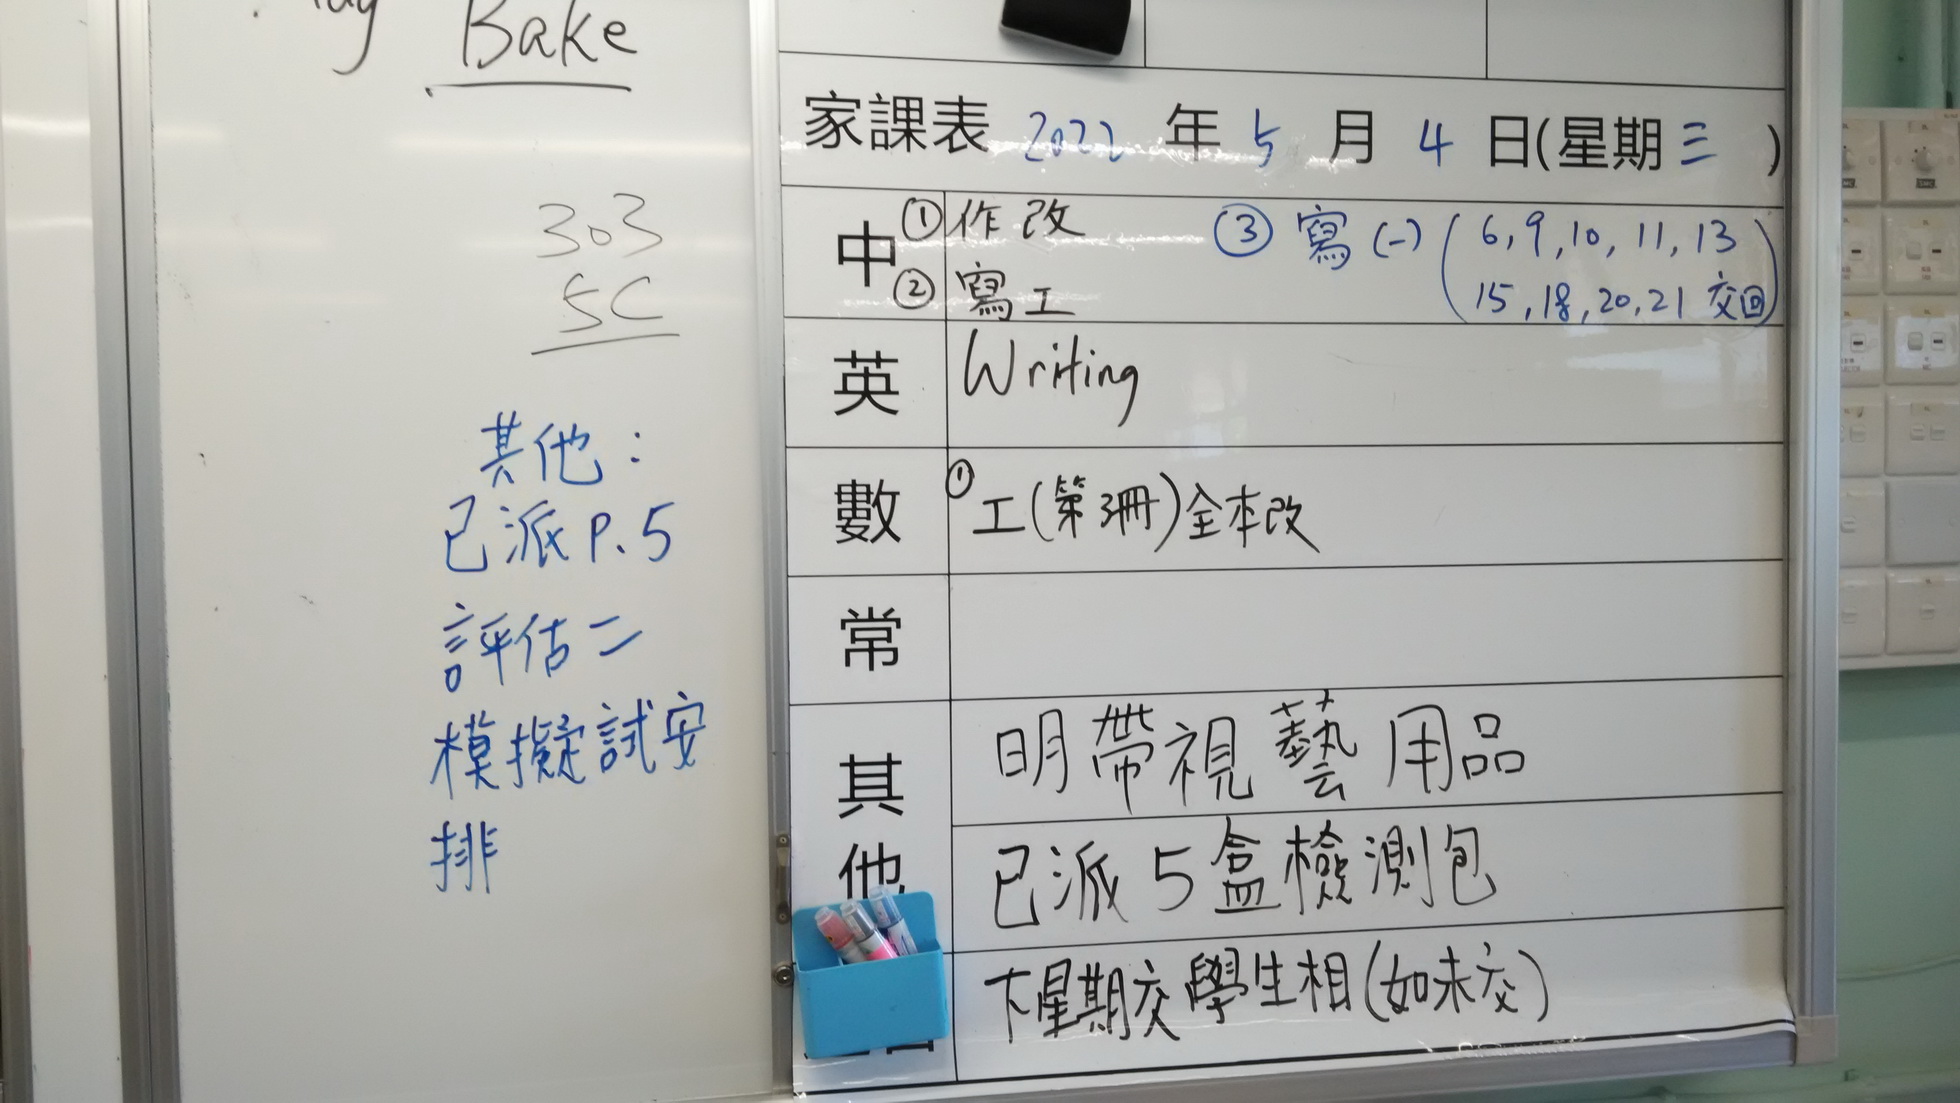 Bake
303
5C
其他：
已派P.5
評估二
模擬試安
排
家課表 2022 年 5 月 4 日(星期三)
中 ①作改 ③ 寫(一) (6, 9, 10, 11, 13
②寫工 15, 18, 20, 21 交回)
英 Writing
數 ①工(第3冊)全本改
常
其他
明帶視藝用品
已派5盒檢測包
下星期交學生相(如未交)